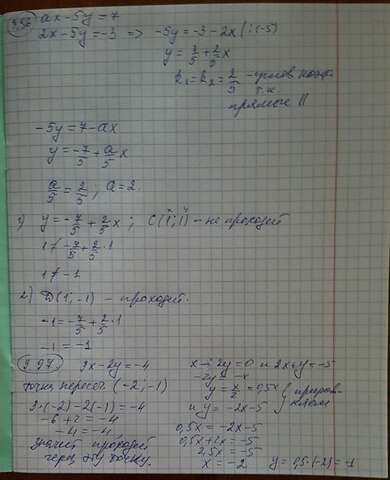 ax-5y=7
2x-5y=-3 => -5y=-3-2x |:(-5)
y=3/5+2/5x
k₁=k₂=2/5 -углов
т.к.
прямые ||
-5y=7-ax
y=-7/5+a/5x
a/5=2/5, a=2.
1) y=-7/5+2/5x; C(1;1) - не проходит
1≠-7/5+2/5·1
1≠-1
2) D(1;-1) - проходит.
-1=-7/5+2/5·1
-1=-1
3x-2y=-4
точка пересеч (-2;-1)
3·(-2)-2(-1)=-4
-6+2=-4
-4=-4
значит проходит
через эту точку.
x-2y=0 и 2x+y=-5
-2y=-x
y=x/2=0,5x
и y=-2x-5
0,5x=-2x-5
0,5x+2x=-5
2,5x=-5
x=-2 y=0,5·(-2)=-1